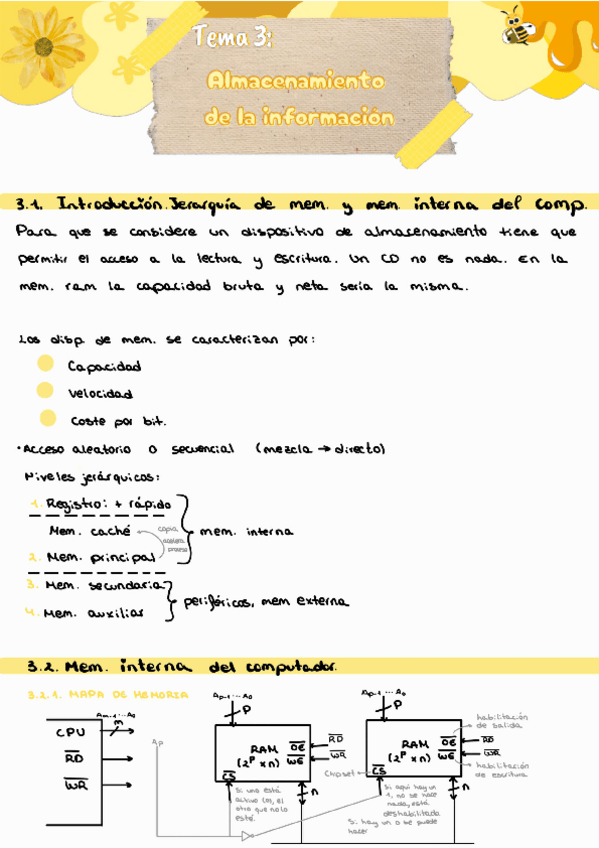 Tema 3:
Almacenamiento
de la información
3.1. Introducción. Jerarquía de mem. y mem. interna del comp.
Para que se considere un dispositivo de almacenamiento tiene que
permitir el acceso a la lectura y escritura. Un CD no es nada. En la
mem. ram la capacidad bruta y neta sería la misma.
Los disp. de mem. se caracterizan por:
Capacidad
Velocidad
Coste por bit.
· Acceso aleatorio o secuencial (mezcla → directo)
Niveles jerárquicos:
1. Registro: + rápido
Mem. caché
copia
acelera
proceso
mem. interna
2. Mem. principal
3. Mem. secundaria
4. Mem. auxiliar
periféricos, mem externa
3.2. Mem. interna del computador.
3.2.1. MAPA DE MEMORIA
Am-1 ... A0
m
CPU
RD
WR
Ap
Ap-1 ... A0
P
RAM
(2^p x n)
OE
WE
CS
RD
WR
n
Si uno está
activo (0), el
otro que no lo
esté.
Ap-1 ... A0
P
RAM
(2^p x n)
OE
WE
CS
RD
WR
n
habilitación
de salida
habilitación
de escritura
Chip set
Si aquí hay un
1, no se hace
nada, está
deshabilitada
Si hay un 0 se puede
hacer